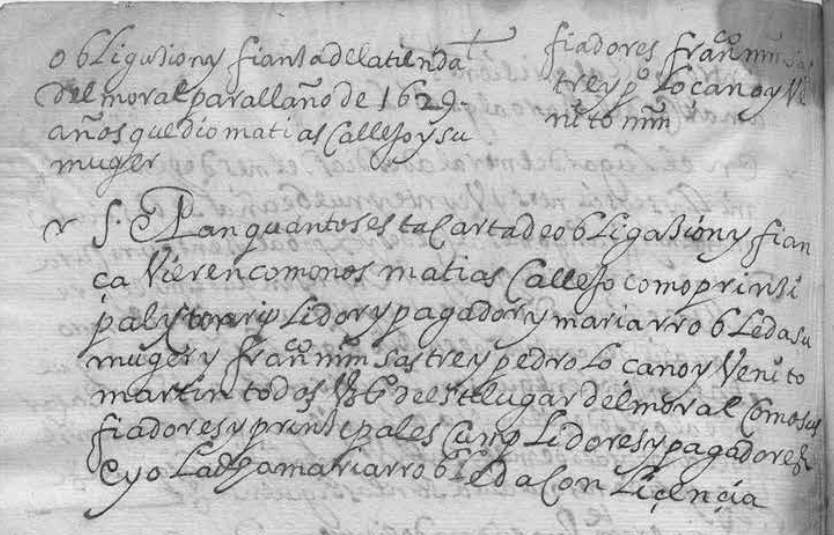 obligasion y fiansa de la tienda
del moral para ll año de 1629
años que dio matias Callejo y su
muger
fiadores fran.co mrn sas
trey p.o Locano y Ve
nito mrn
S. Pan quantos esta Carta de obligasion y fian
ça Vieren como nos matias Callejo como prinsi
pal y Cumplidor y pagador y maria rrobleda su
muger y fran.co mrn sastre y pedro Locano y Venito
martin todos Vos de este lugar del moral Como sus
fiadores y prinsipales Cunplidores y pagadores
e yo La dha maria rrobleda Con Liçençia